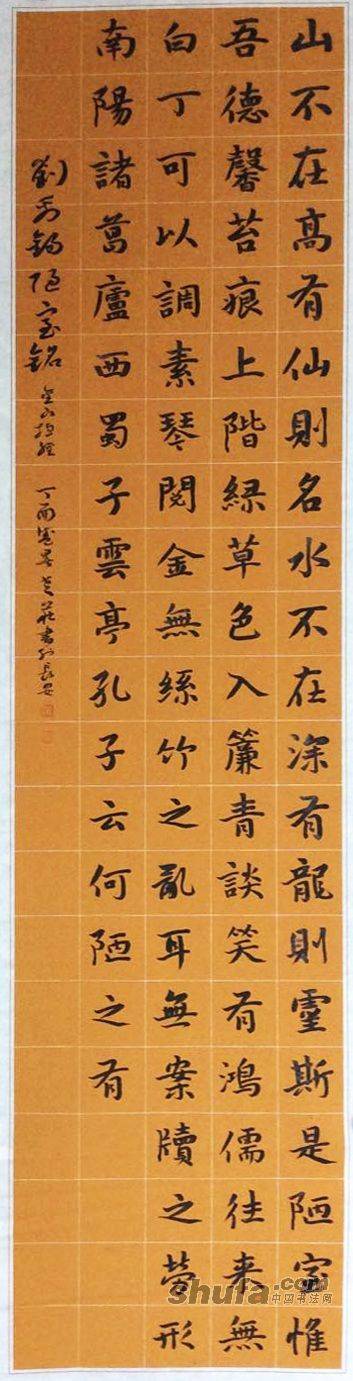 山不在高有仙則名水不在深有龍則靈斯是陋室惟
吾德馨苔痕上階緑草色入簾青談笑有鴻儒往來無
白丁可以調素琴閱金無絲竹之亂耳無案牘之勞形
南陽諸葛廬西蜀子雲亭孔子云何陋之有
劉禹錫陋室銘 丁酉 書於長安
Shufa.com
中国书法网